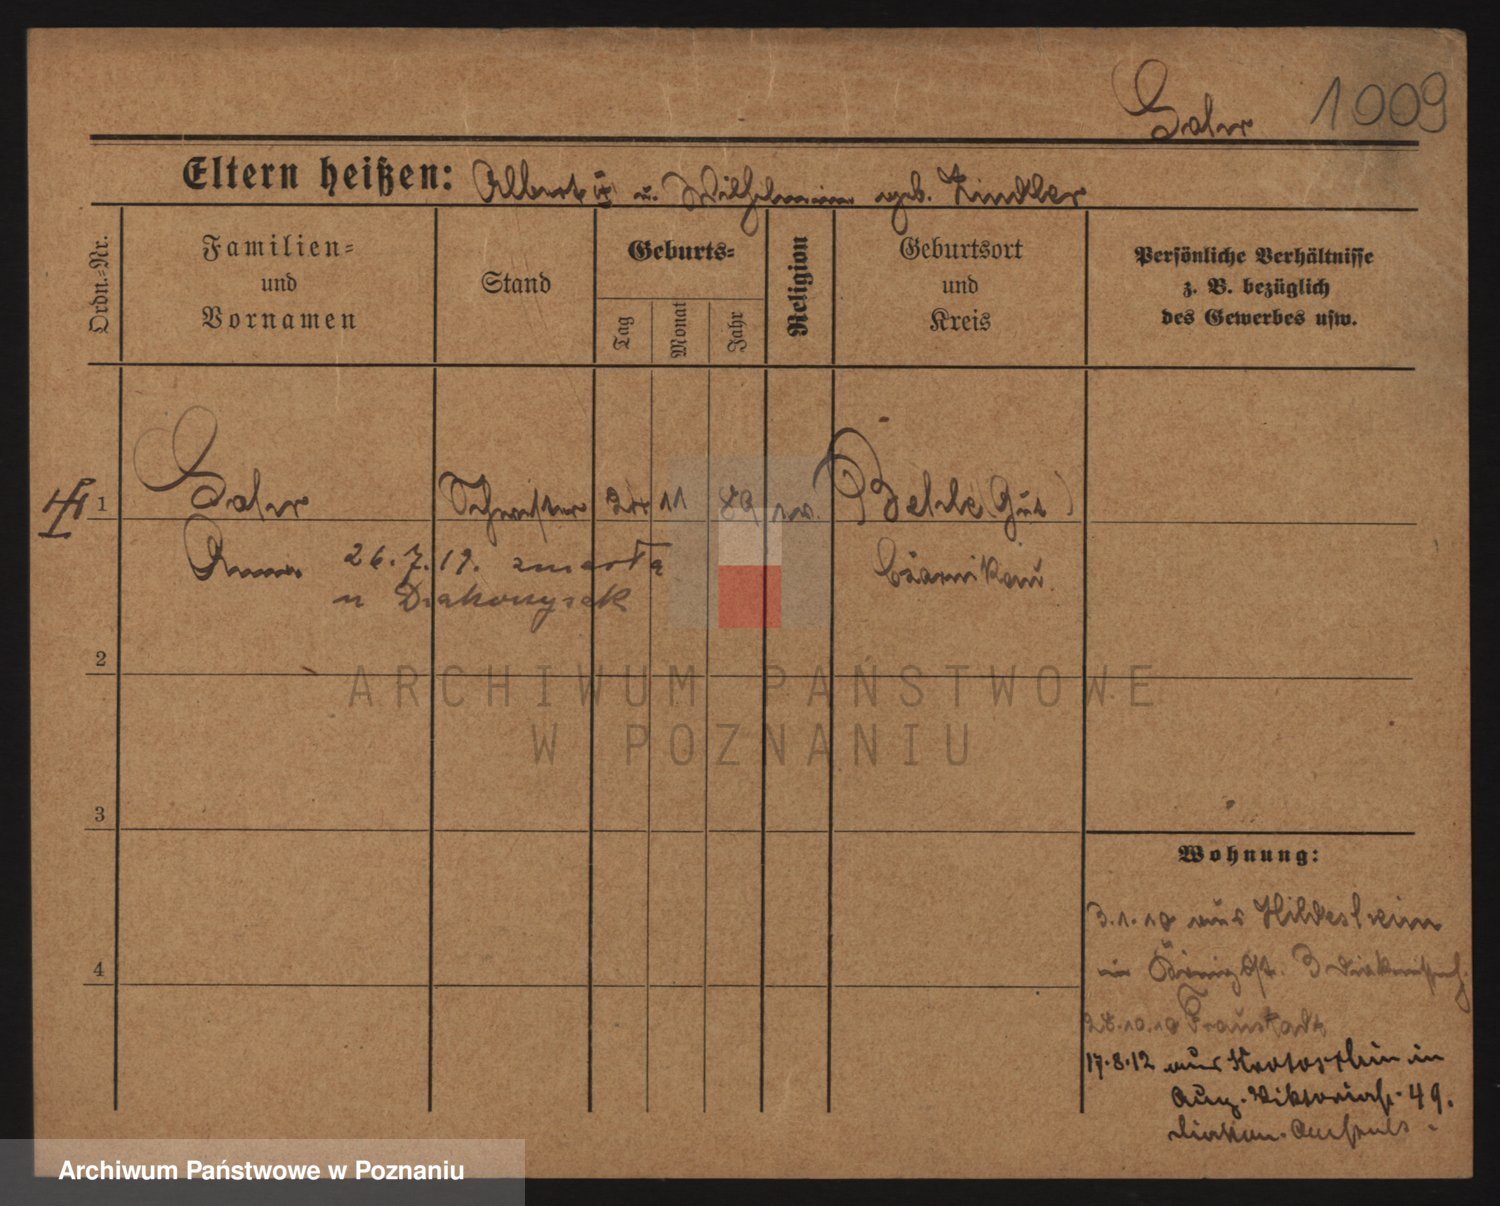 1009
Eltern heißen: Albert u. Wilhelmine geb. Zindler
Ordn.-Nr.
Familien- und Vornamen
Stand
Geburts-
Tag
Monat
Jahr
Religion
Geburtsort und Kreis
Persönliche Verhältnisse
z. B. bezüglich
des Gewerbes usw.
1
Schwester
11
89
ev.
(Gut)
Anna
26.7.19. zmarła
Czarnikau.
2
ARCHIWUM PAŃSTWOWE
W POZNANIU
3
Wohnung:
3.1.10 aus Hildesheim
4
in Königstr. 3
28.10.10 Fraustadt
17.8.12 aus Krotoschin in
Aug. Viktoriastr. 49.
Archiwum Państwowe w Poznaniu